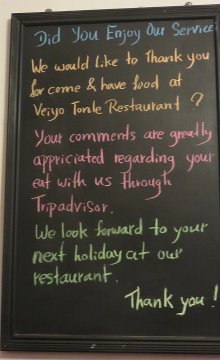 Did You Enjoy Our Service
We would like to Thank you
for come & have food at
Veiyo Tonle Restaurant ?
Your comments are greatly
appriciated regarding your
eat with us through
Tripadvisor.
We look forward to your
next holiday at our
restaurant.
Thank you !